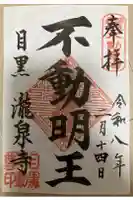 奉拝
令和八年
一月十四日
不動明王
目黒 瀧泉寺